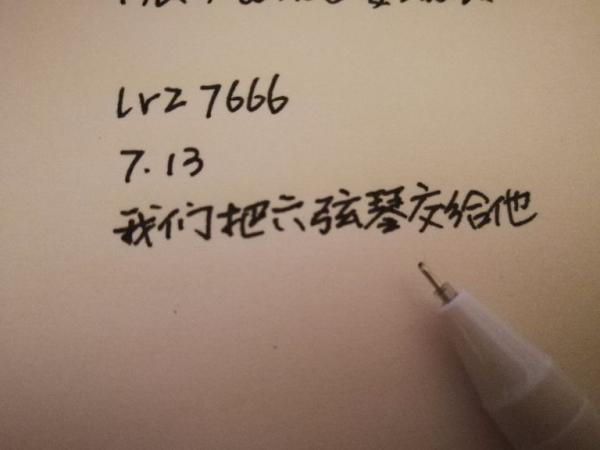 lrz 7666
7.13
我们把六弦琴交给他